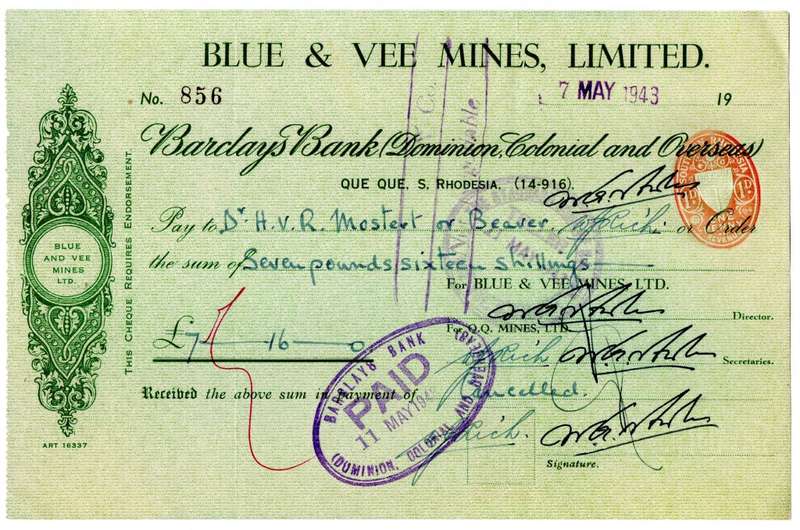 BLUE & VEE MINES, LIMITED.
No. 856
7 MAY 1943 19
Barclays Bank (Dominion, Colonial and Overseas)
QUE QUE, S. RHODESIA. (14-916).
Pay to Dr H.V.R. Mostert or Bearer or Order
the sum of Seven pounds sixteen shillings
For BLUE & VEE MINES LTD.
Director.
For Q.Q. MINES, LTD.
£7 — 16 — 0
Secretaries.
Received the above sum in payment of Cancelled.
Signature.
BLUE
AND VEE
MINES
LTD.
THIS CHEQUE REQUIRES ENDORSEMENT.
ART 16337
BARCLAYS BANK
PAID
11 MAY 194
(DOMINION, COLONIAL AND OVERSEAS)